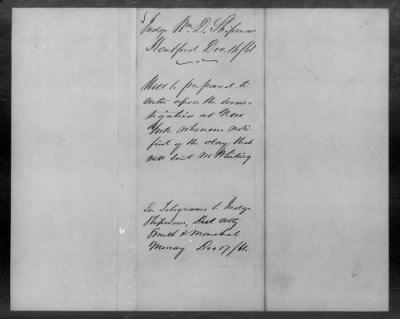 Judge Wm D. Shipman
Hartford Dec 16/61
Will be prepared to
enter upon the inves-
tigation at New
York whenever noti-
fied of the day that
will suit Mr Whiting
See Telegrams to Judge
Shipman, Dist Atty
Smith & Marshal
Murray Dec 17/61.